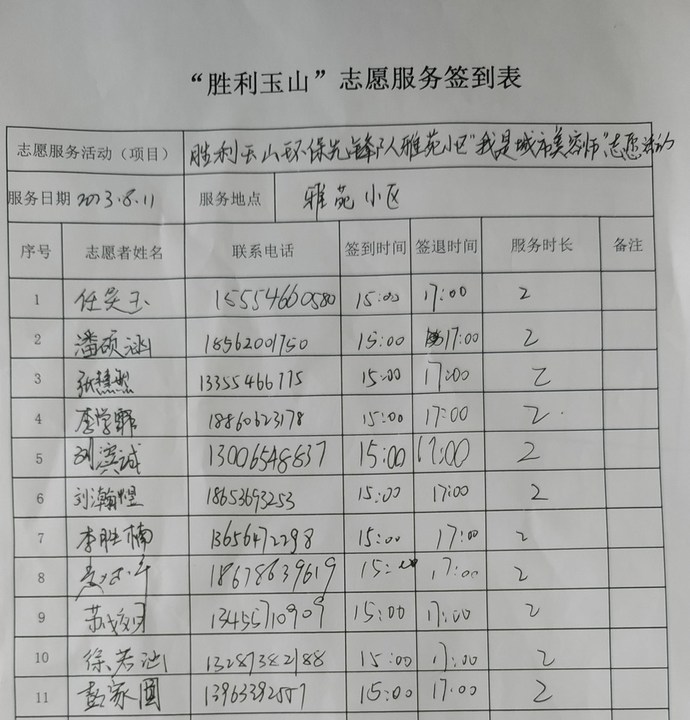 “胜利玉山”志愿服务签到表
志愿服务活动（项目） 胜利玉山环保先锋队雅苑小区“我是城市美容师”志愿活动
服务日期 2023.8.11 服务地点 雅苑小区
序号 志愿者姓名 联系电话 签到时间 签退时间 服务时长 备注
1 任奕玉 15554660580 15:00 17:00 2
2 潘硕涵 18562001750 15:00 17:00 2
3 张慧熙 13355466775 15:00 17:00 2
4 李学霏 18860623178 15:00 17:00 2
5 刘滨诚 13006548837 15:00 17:00 2
6 刘瀚煜 18653693253 15:00 17:00 2
7 李胜楠 13656472298 15:00 17:00 2
8 18678639619 15:00 17:00 2
9 苏 13455710909 15:00 17:00 2
10 徐若涵 13287382188 15:00 17:00 2
11 彭家国 13963392557 15:00 17:00 2